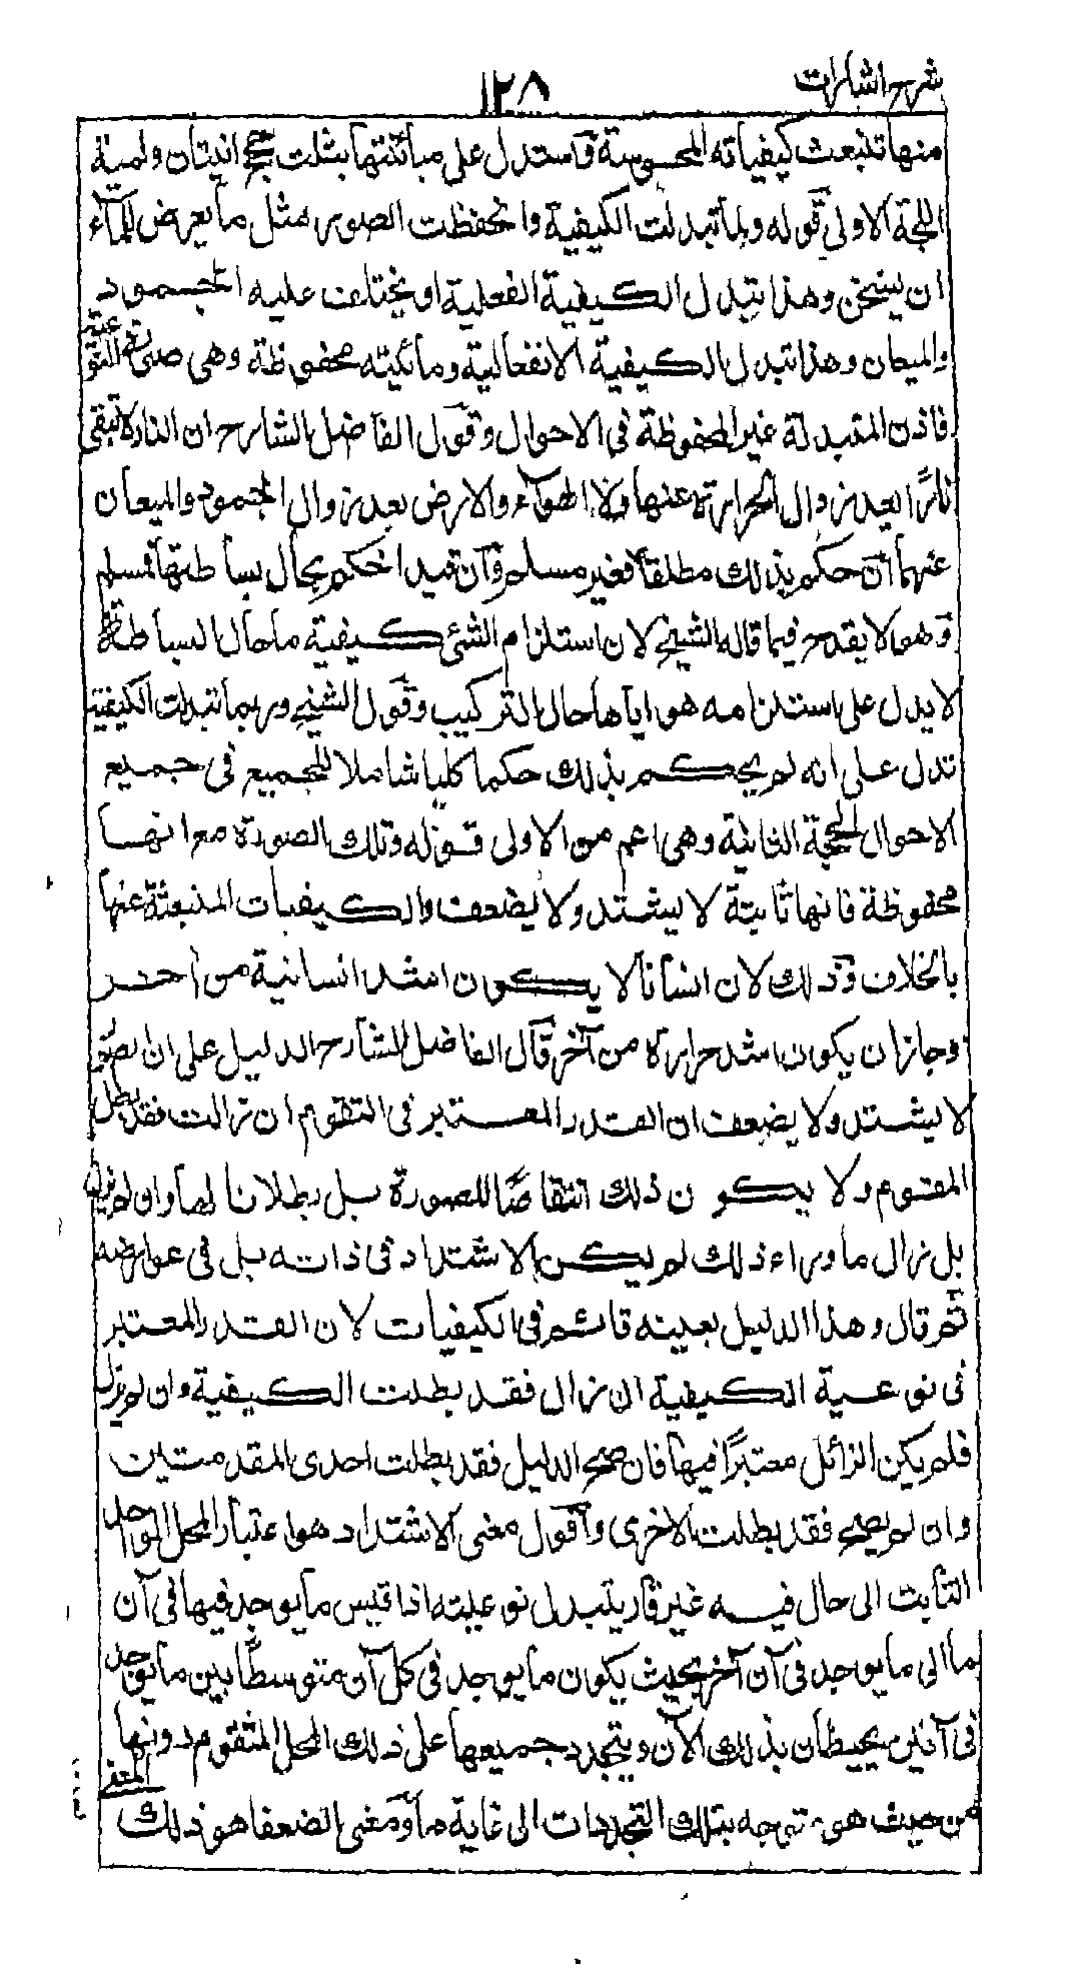 شرح اشارات
١٢٨
منها تنبعث كيفياته المحسوسة فاستدل على مباينتها بثلث حجج انيتان ولمية
الحجة الاولى قوله ولما تبدلت الكيفية وانحفظت الصور مثل ما يعرض للماء
ان يسخن وهذا تبدل الكيفية الفعلية او يختلف عليه الجمود
والميعان وهذا تبدل الكيفية الانفعالية ومائيته محفوظة وهى صورته النوعية
فاذن المتبدلة غير المحفوظة فى الاحوال وقول الفاضل الشارح ان النار لا تبقى
نارًا بعد زوال الحرارة عنها ولا الهواء والارض بعد زوال الجمود والميعان
عنهما ان حكم بذلك مطلقا فغير مسلم وان قيد الحكم بحال بساطتها فمسلم
وهو لا يقدح فيما قاله الشيخ لان استلزام الشئ كيفية ما حال البساطة
لا يدل على استلزامه هو اياها حال التركيب وقول الشيخ وربما تبدلت الكيفية
تدل على انه لم يحكم بذلك حكما كليا شاملا للجميع فى جميع
الاحوال الحجة الثانية وهى اعم من الاولى قوله وتلك الصورة مع انها
محفوظة فانها ثابتة لا يشتد ولا يضعف والكيفيات المنبعثة عنها
بالخلاف وذلك لان انسانا لا يكون اشد انسانية من آخر
وجاز ان يكون اشد حرارة من آخر قال الفاضل الشارح الدليل على ان الصور
لا يشتد ولا يضعف ان القدر المعتبر فى التقوم ان زالت فقد بطل
المقوم ولا يكون ذلك انتقاصًا للصورة بل بطلانا لها وان لم يزل
بل زال ما وراء ذلك لم يكن الاشتداد فى ذاته بل فى عوارضه
ثم قال وهذا الدليل بعينه قائم فى الكيفيات لان القدر المعتبر
فى نوعية الكيفية ان زال فقد بطلت الكيفية وان لم يزل
فلم يكن الزائل معتبرًا فيها فان صح الدليل فقد بطلت احدى المقدمتين
وان لم يصح فقد بطلت الاخرى واقول معنى الاشتداد هو اعتبار المحل الواحد
الثابت الى حال فيه غير قار يتبدل نوعيته اذا قيس ما يوجد فيها فى آن
ما الى ما يوجد فى آن آخر بحيث يكون ما يوجد فى كل آن متوسطًا بين ما يوجد
فى آنين يحيطان بذلك الآن ويتجدد جميعها على ذلك المحل المتقوم دونها
من حيث هو متوجه بتلك التجددات الى غاية ما ومعنى الضعف هو ذلك
المعنى